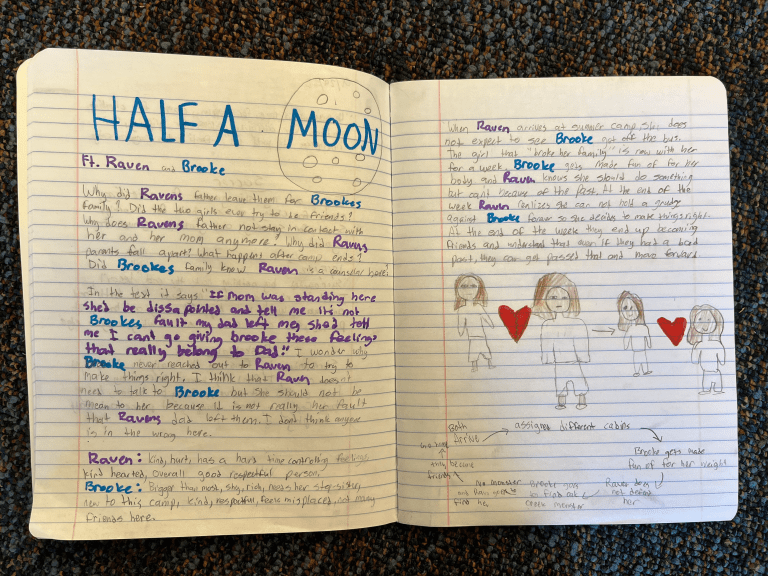 HALF A MOON
Ft. Raven and Brooke
Why did Ravens father leave them for Brookes
family? Did the two girls ever try to be friends?
Why does Ravens father not stay in contact with
her and her mom anymore? Why did Ravens
parents fall apart? What happens after camp ends?
Did Brookes family know Raven is a counsler here?
In the text it says "If mom was standing here
she'd be dissapointed and tell me it's not
Brookes fault my dad left me, she'd tell
me I cant go giving brooke these feelings
that really belong to Dad." I wonder why
Brooke never reached out to Raven to try to
make things right. I think that Raven doesn't
need to talk to Brooke but she should not be
mean to her because it is not really her fault
that Ravens dad left them. I dont think anyone
is in the wrong here.
Raven: kind, hurt, has a hard time controlling feelings,
kind hearted, overall good respectful person.
Brooke: Bigger than most, shy, rich, needs her step sister,
new to this camp, kind, respectful, feels misplaced, not many
friends here.
When Raven arrives at summer camp, she does
not expect to see Brooke get off the bus.
The girl that "broke her family" is now with her
for a week. Brooke gets made fun of for her
body and Raven knows she should do something
but cant because of the past. At the end of the
week Raven realizes she can not hold a grudge
against Brooke forever so she decides to make things right.
At the end of the week they end up becoming
friends and understand that even if they had a bad
past, they can get passed that and move forward
Both
arrive
assigned different cabins
Brooke gets made
fun of for her weight
Raven does
not defend
her
Brooke goes
to find out
creek monster
No monster
and Raven goes to
find her
they become
friends